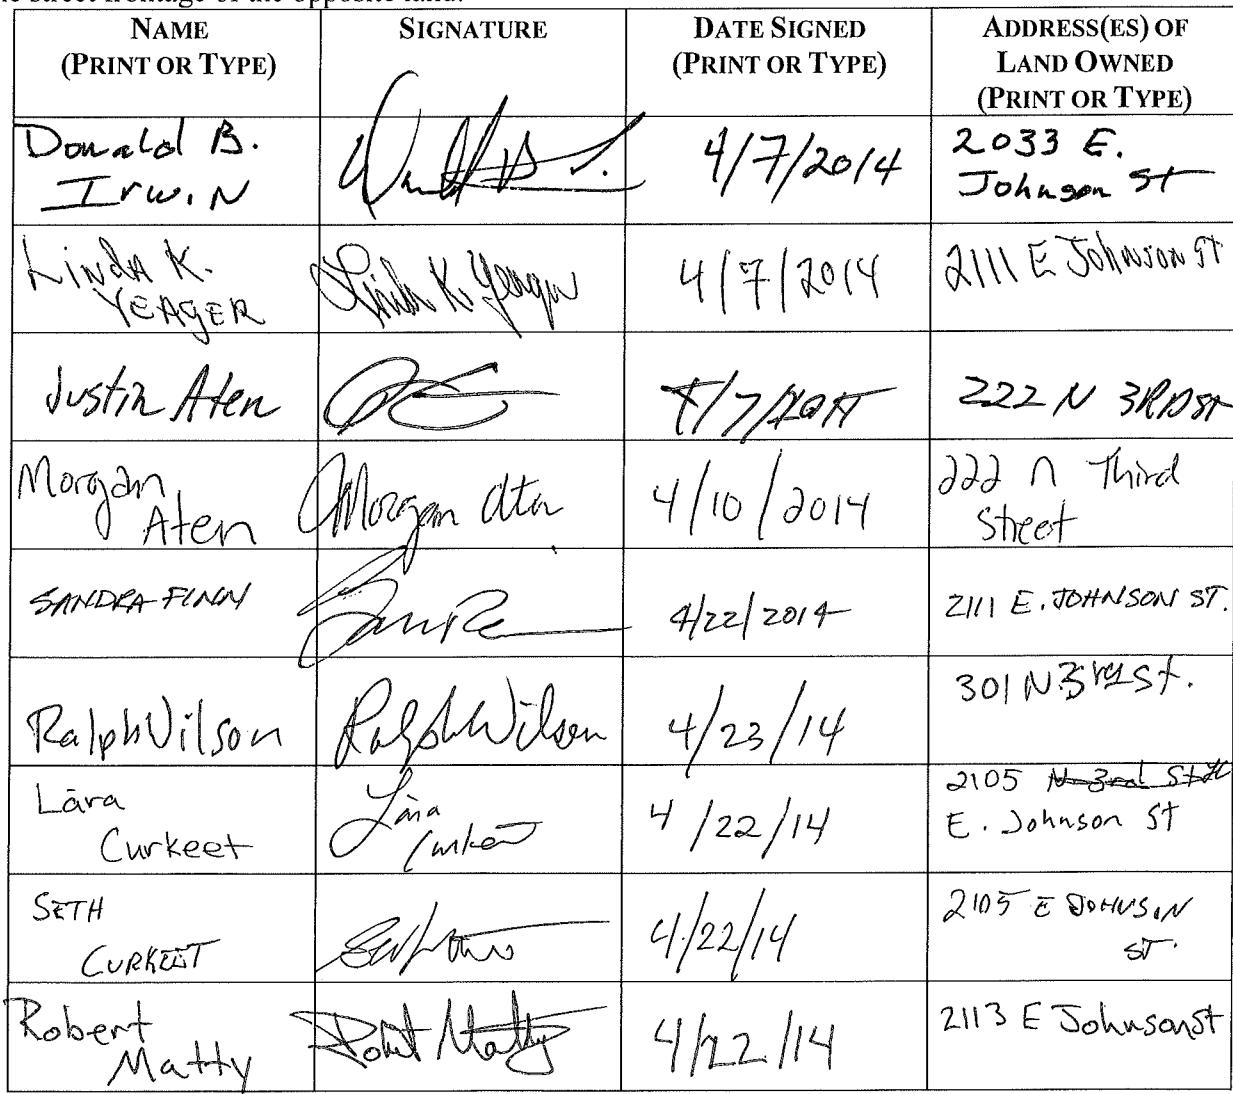 the street frontage of the opposite land.
NAME
(PRINT OR TYPE)
SIGNATURE
DATE SIGNED
(PRINT OR TYPE)
ADDRESS(ES) OF
LAND OWNED
(PRINT OR TYPE)
Donald B.
Irwin
4/7/2014
2033 E.
Johnson St
Linda K.
YEAGER
Linda K. Yeager
4/7/2014
2111 E Johnson St
Justin Aten
4/7/2014
222 N 3RD St
Morgan
Aten
Morgan Aten
4/10/2014
222 N Third
Street
SANDRA FINN
4/22/2014
2111 E. JOHNSON ST.
Ralph Wilson
Ralph Wilson
4/23/14
301 N 3rd St.
Lāra
Curkeet
Lāra
Curkeet
4/22/14
2105 N 3rd St
E. Johnson St
SETH
CURKEET
4/22/14
2105 E JOHNSON
ST.
Robert
Matty
Robert Matty
4/22/14
2113 E Johnson St